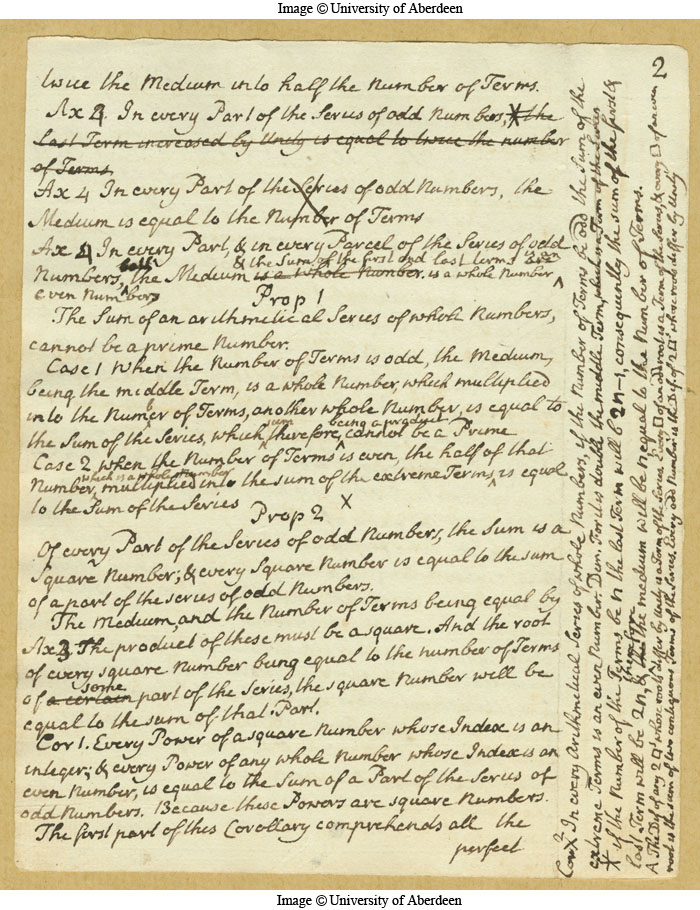 Image © University of Aberdeen
2
twice the Medium into half the Number of Terms.
Ax 3. In every Part of the Series of odd Numbers, * the
Last Term increased by Unity is equal to twice the number
of Terms
Ax 4 In every Part of the Series of odd Numbers, the
Medium is equal to the Number of Terms
Ax 4 In every Part, & in every Parcel of the Series of odd
& the Sum of the first and last terms is an
Numbers, the Medium is a whole Number. is a whole Number
even Number
Prop 1
The Sum of an arithmetical Series of whole Numbers,
cannot be a prime Number.
Case 1 When the Number of Terms is odd, the Medium,
being the middle Term, is a whole Number, which multiplied
into the Numer of Terms, another whole Number, is equal to
sum being a product
the Sum of the Series, which therefore, cannot be a Prime
Case 2 when the Number of Terms is even, the half of that
which is a whole Number
Number, multiplied into the sum of the extreme Terms, is equal
to the Sum of the Series X
Prop 2
Of every Part of the Series of odd Numbers, the Sum is a
Square Number; & every Square Number is equal to the sum
of a part of the series of odd Numbers.
The Medium, and the Number of Terms being equal by
Ax 3. The product of these must be a square. And the root
of every square Number being equal to the number of Terms
some
of a certain part of the Series, the square Number will be
equal to the sum of that Part.
Cor 1. Every Power of a square Number whose Index is an
integer; & every Power of any whole Number whose Index is an
even Number, is equal to the Sum of a Part of the Series of
odd Numbers. Because these Powers are square Numbers.
The first part of this Corollary comprehends all the
perfect
X In every Arithmetical Series of whole Numbers, if the Number of Terms be odd the Sum of the
extreme Terms is an even Number. Dem. For it is double the middle Term, which is a Term of the Series
* if the Number of the Terms be n the last Term will be 2n-1, consequently the sum of the first &
last Term will be 2n, & the medium will be n equal to the Number of Terms.
A The Dif of any 2 □s whose roots differ by Unity is a Term of the Series, & every □ of an odd root is a Term of the Series, & every □ of an even
root is the sum of two contiguous Terms of the Series. Every odd Number is the Dif of 2 □s whose roots differ by Unity
Image © University of Aberdeen